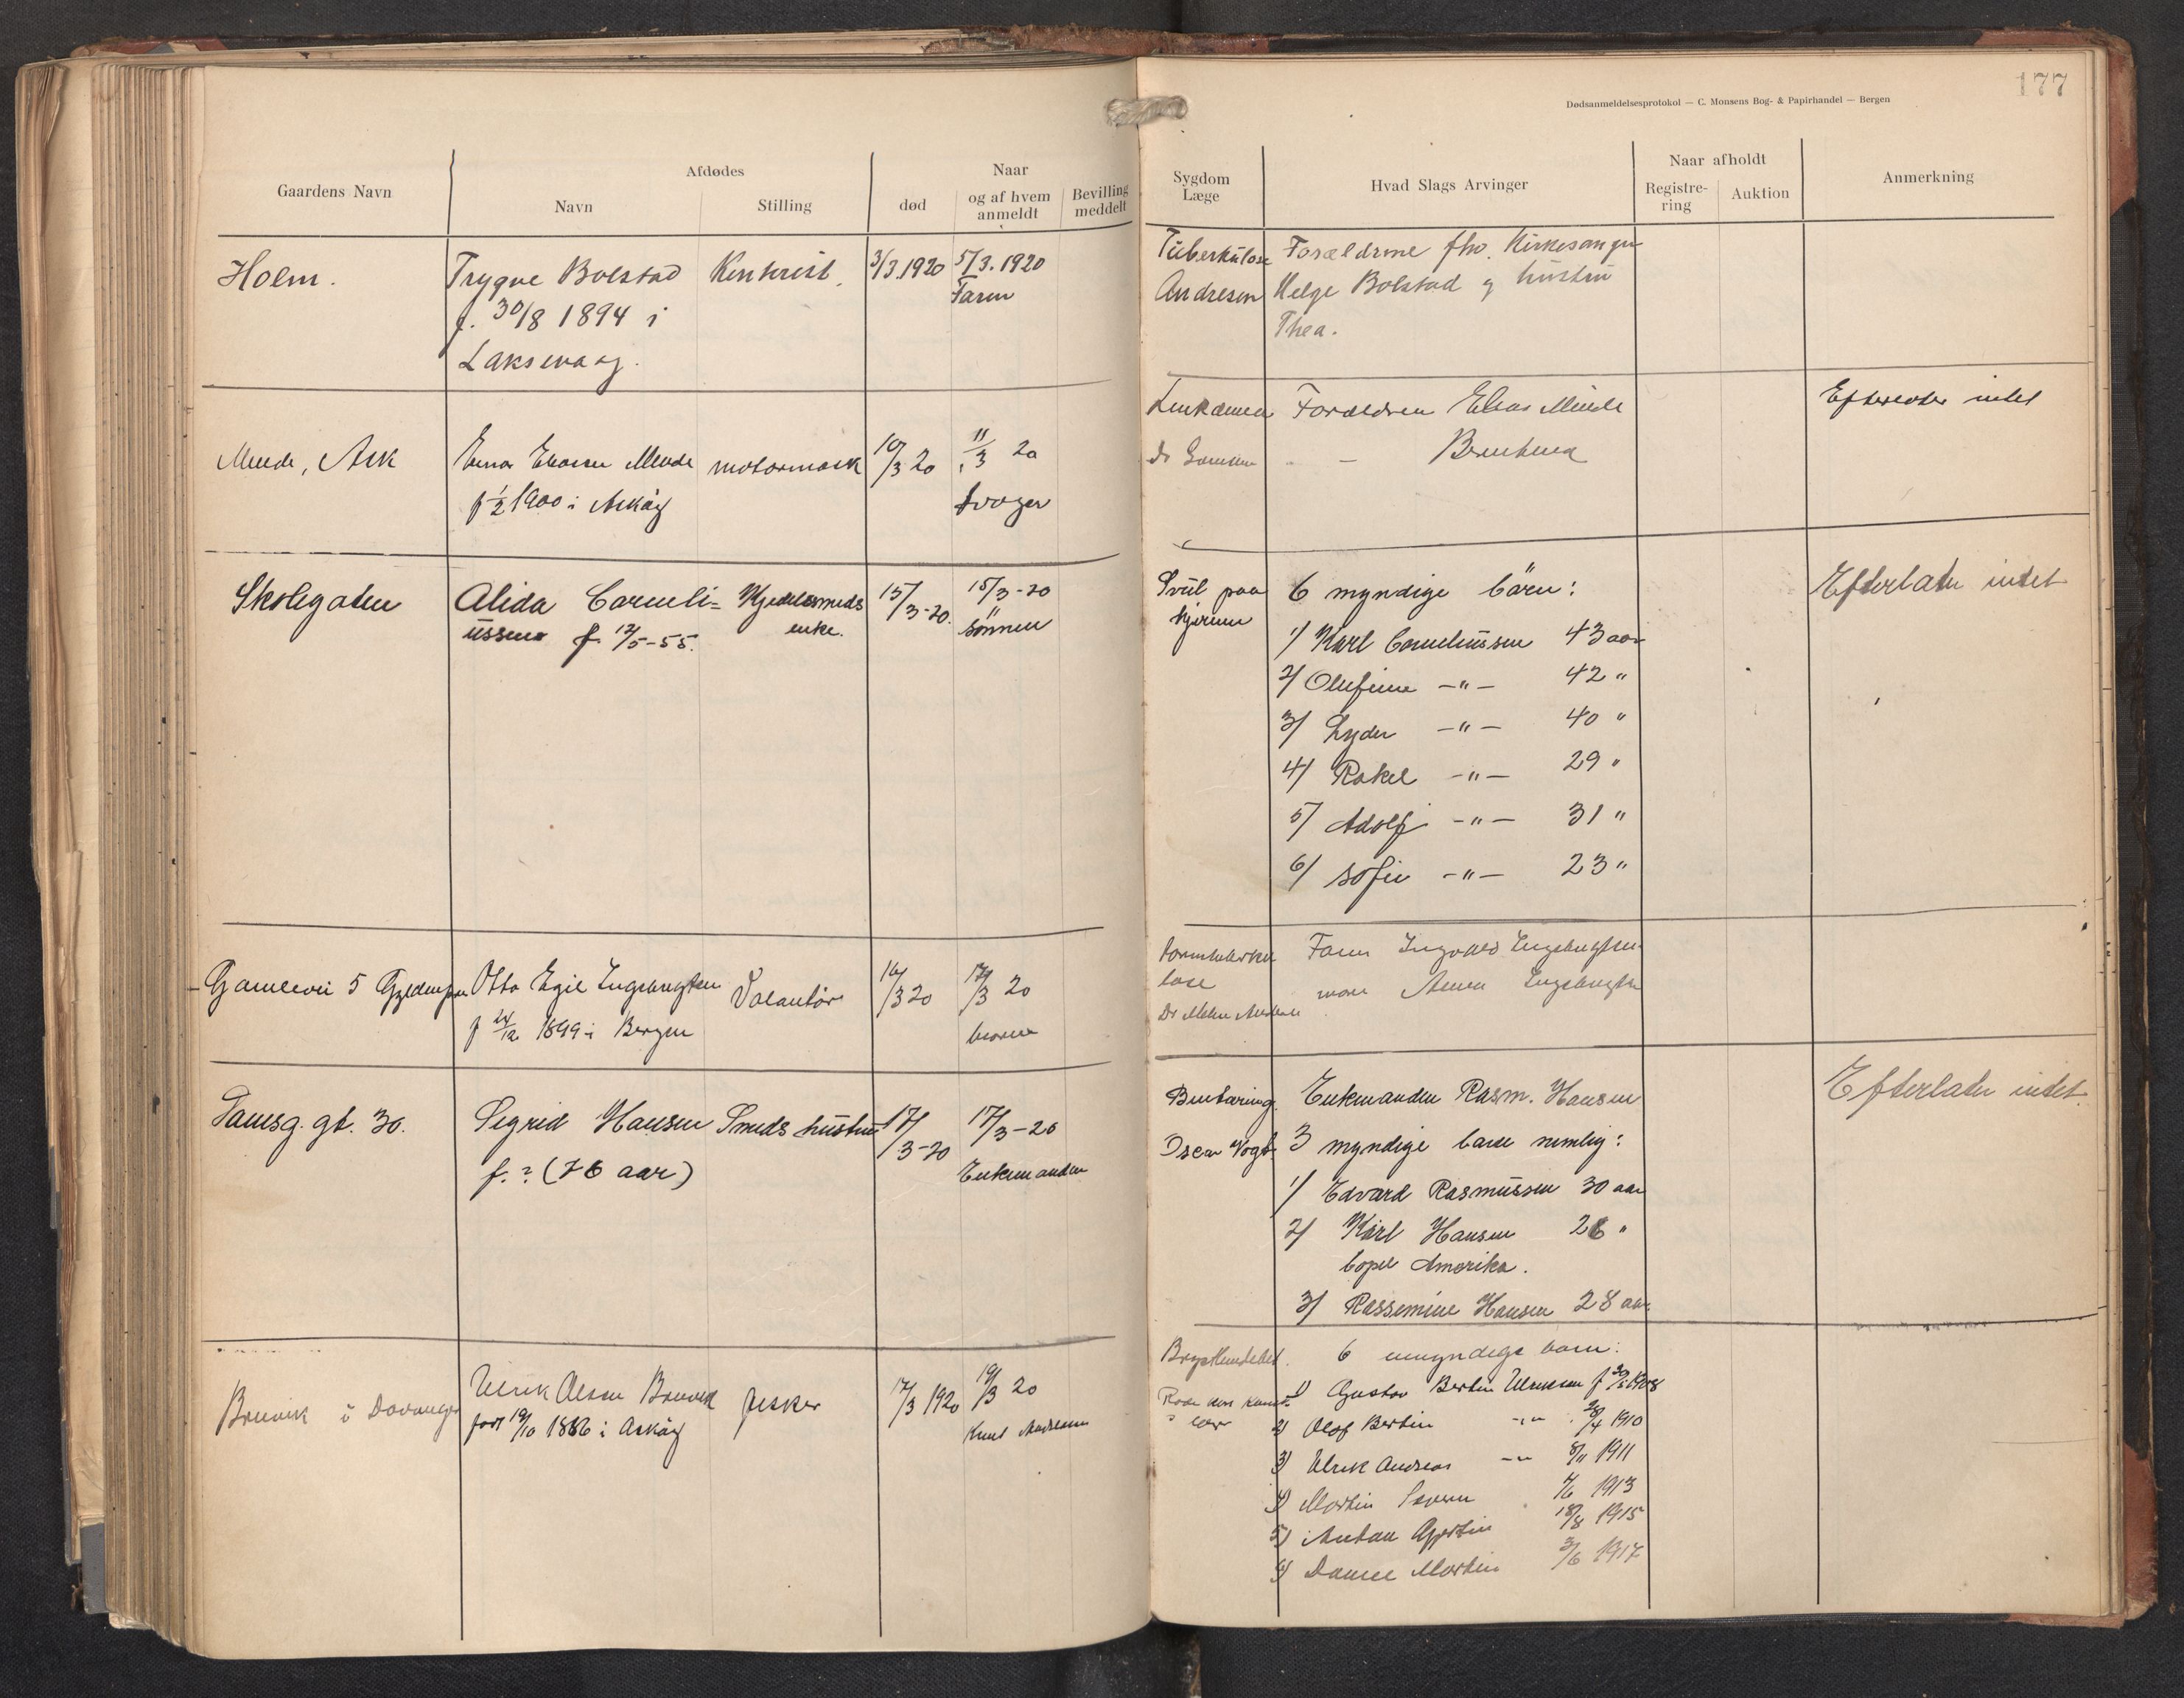 177
Dødsanmeldelsesprotokol — C. Monsens Bog- & Papirhandel — Bergen
Gaardens Navn
Afdødes
Navn
Stilling
død
Naar
og af hvem
anmeldt
Bevilling
meddelt
Sygdom
Læge
Hvad Slags Arvinger
Naar afholdt
Registre-
ring
Auktion
Anmerkning
Holm.
Trygve Bolstad
f. 30/8 1894 i
Laksevaag.
Kontorist.
3/3.1920
5/3.1920
Faren
Tuberkulose
Andresen
Forældrene fhv. Kirkesanger
Helge Bolstad og hustru
Thea.
Minde, Ask
Einar Eliassen Minde
f 1/2 1900 i Askøy
motormask
10/3 20
11/3 20
svoger
Dr
Forældren Elias Minde
— Berentina
Efterlater intet
Skolegaten
Alida Corneli=
ussen f. 12/5-55.
Kjedelsmeds
enke.
15/3-20.
15/3-20
sønnen
Svul paa
hjernen
6 myndige børn:
1/ Karl Corneliussen 43 aar
2/ Olufine —"— 42 "
3/ Lyder —"— 40 "
4/ Rakel —"— 29 "
5/ Adolf —"— 31 "
6/ Sofie —"— 23 "
Efterlater intet
Gamlevei 5
Otto Egil Ingebrigtsen
f 24/12 1899 i Bergen
Volantør
16/3 20
17/3 20
Tarmtuberku
lose
Dr
Faren Ingvald Ingebrigtsen
mor Ingebrigtsen
Damsg. gt. 30.
Sigrid Hansen
f. ? (76 aar)
Smeds hustru
17/3-20
17/3-20
Enkemanden
Oscar Vogt
Enkemanden Rasm. Hansen
3 myndige barn nemlig:
1/ Edvard Rasmussen 30 aar
2/ Karl Hansen 26 "
bopel Amerika.
3/ Rassemine Hansen 28 aar.
Efterlater intet.
Bruvik i Davanger
Ulrik Olsen Bruvik
født 19/10 1886 i Askøy
fisker
17/3 1920
19/3 20
Knut Andersen
Brystbetendelse.
6 umyndige barn:
1) Gustav Bertin Ulriksen f 1908
2) Olaf Bertin —"— 28/4 1910
3) Ulrik Andreas —"— 8/11 1911
4) Martin 1913
5) Anton 18/8 1915
6) Daniel Martin 3/6 1917